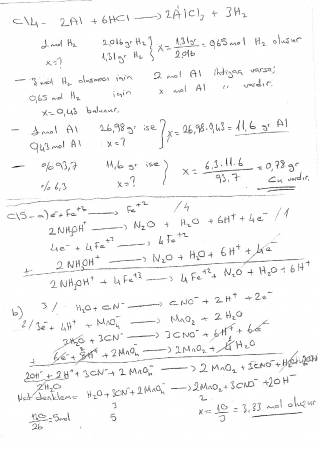 C14- 2Al + 6HCl ⟶ 2AlCl₃ + 3H₂
1 mol H₂ 2,016 gr H₂ } x = 1,31 gr / 2,016 = 0,65 mol H₂ oluşur
x=? 1,31 gr H₂
— 3 mol H₂ oluşması için 2 mol Al ihtiyaç varsa;
0,65 mol H₂ için x mol Al " vardır.
x = 0,43 bulunur.
— 1 mol Al 26,98 gr ise } x = 26,98 · 0,43 = 11,6 gr Al
0,43 mol Al x=?
— %93,7 11,6 gr ise } x = 6,3 · 11,6 / 93,7 = 0,78 gr
%6,3 x=? Cu vardır.
C15- a) e⁻ + Fe⁺³ ⟶ Fe⁺² /4
2NH₃OH⁺ ⟶ N₂O + H₂O + 6H⁺ + 4e⁻ /1
4e⁻ + 4Fe⁺³ ⟶ 4Fe⁺²
+ 2NH₃OH⁺ ⟶ N₂O + H₂O + 6H⁺ + 4e⁻
2NH₃OH⁺ + 4Fe⁺³ ⟶ 4Fe⁺² + N₂O + H₂O + 6H⁺
b) 3/ H₂O + CN⁻ ⟶ CNO⁻ + 2H⁺ + 2e⁻
2/ 3e⁻ + 4H⁺ + MnO₄⁻ ⟶ MnO₂ + 2H₂O
3H₂O + 3CN⁻ ⟶ 3CNO⁻ + 6H⁺ + 6e⁻
+ 6e⁻ + 8H⁺ + 2MnO₄⁻ ⟶ 2MnO₂ + 4H₂O
2OH⁻ + 2H⁺ + 3CN⁻ + 2MnO₄⁻ ⟶ 2MnO₂ + 3CNO⁻ + H₂O + 2OH⁻
2H₂O
Net denklem= H₂O + 3CN⁻ + 2MnO₄⁻ ⟶ 2MnO₂ + 3CNO⁻ + 2OH⁻
3 2
130/26 = 5 mol 5 x = 10/3 = 3,33 mol oluşur